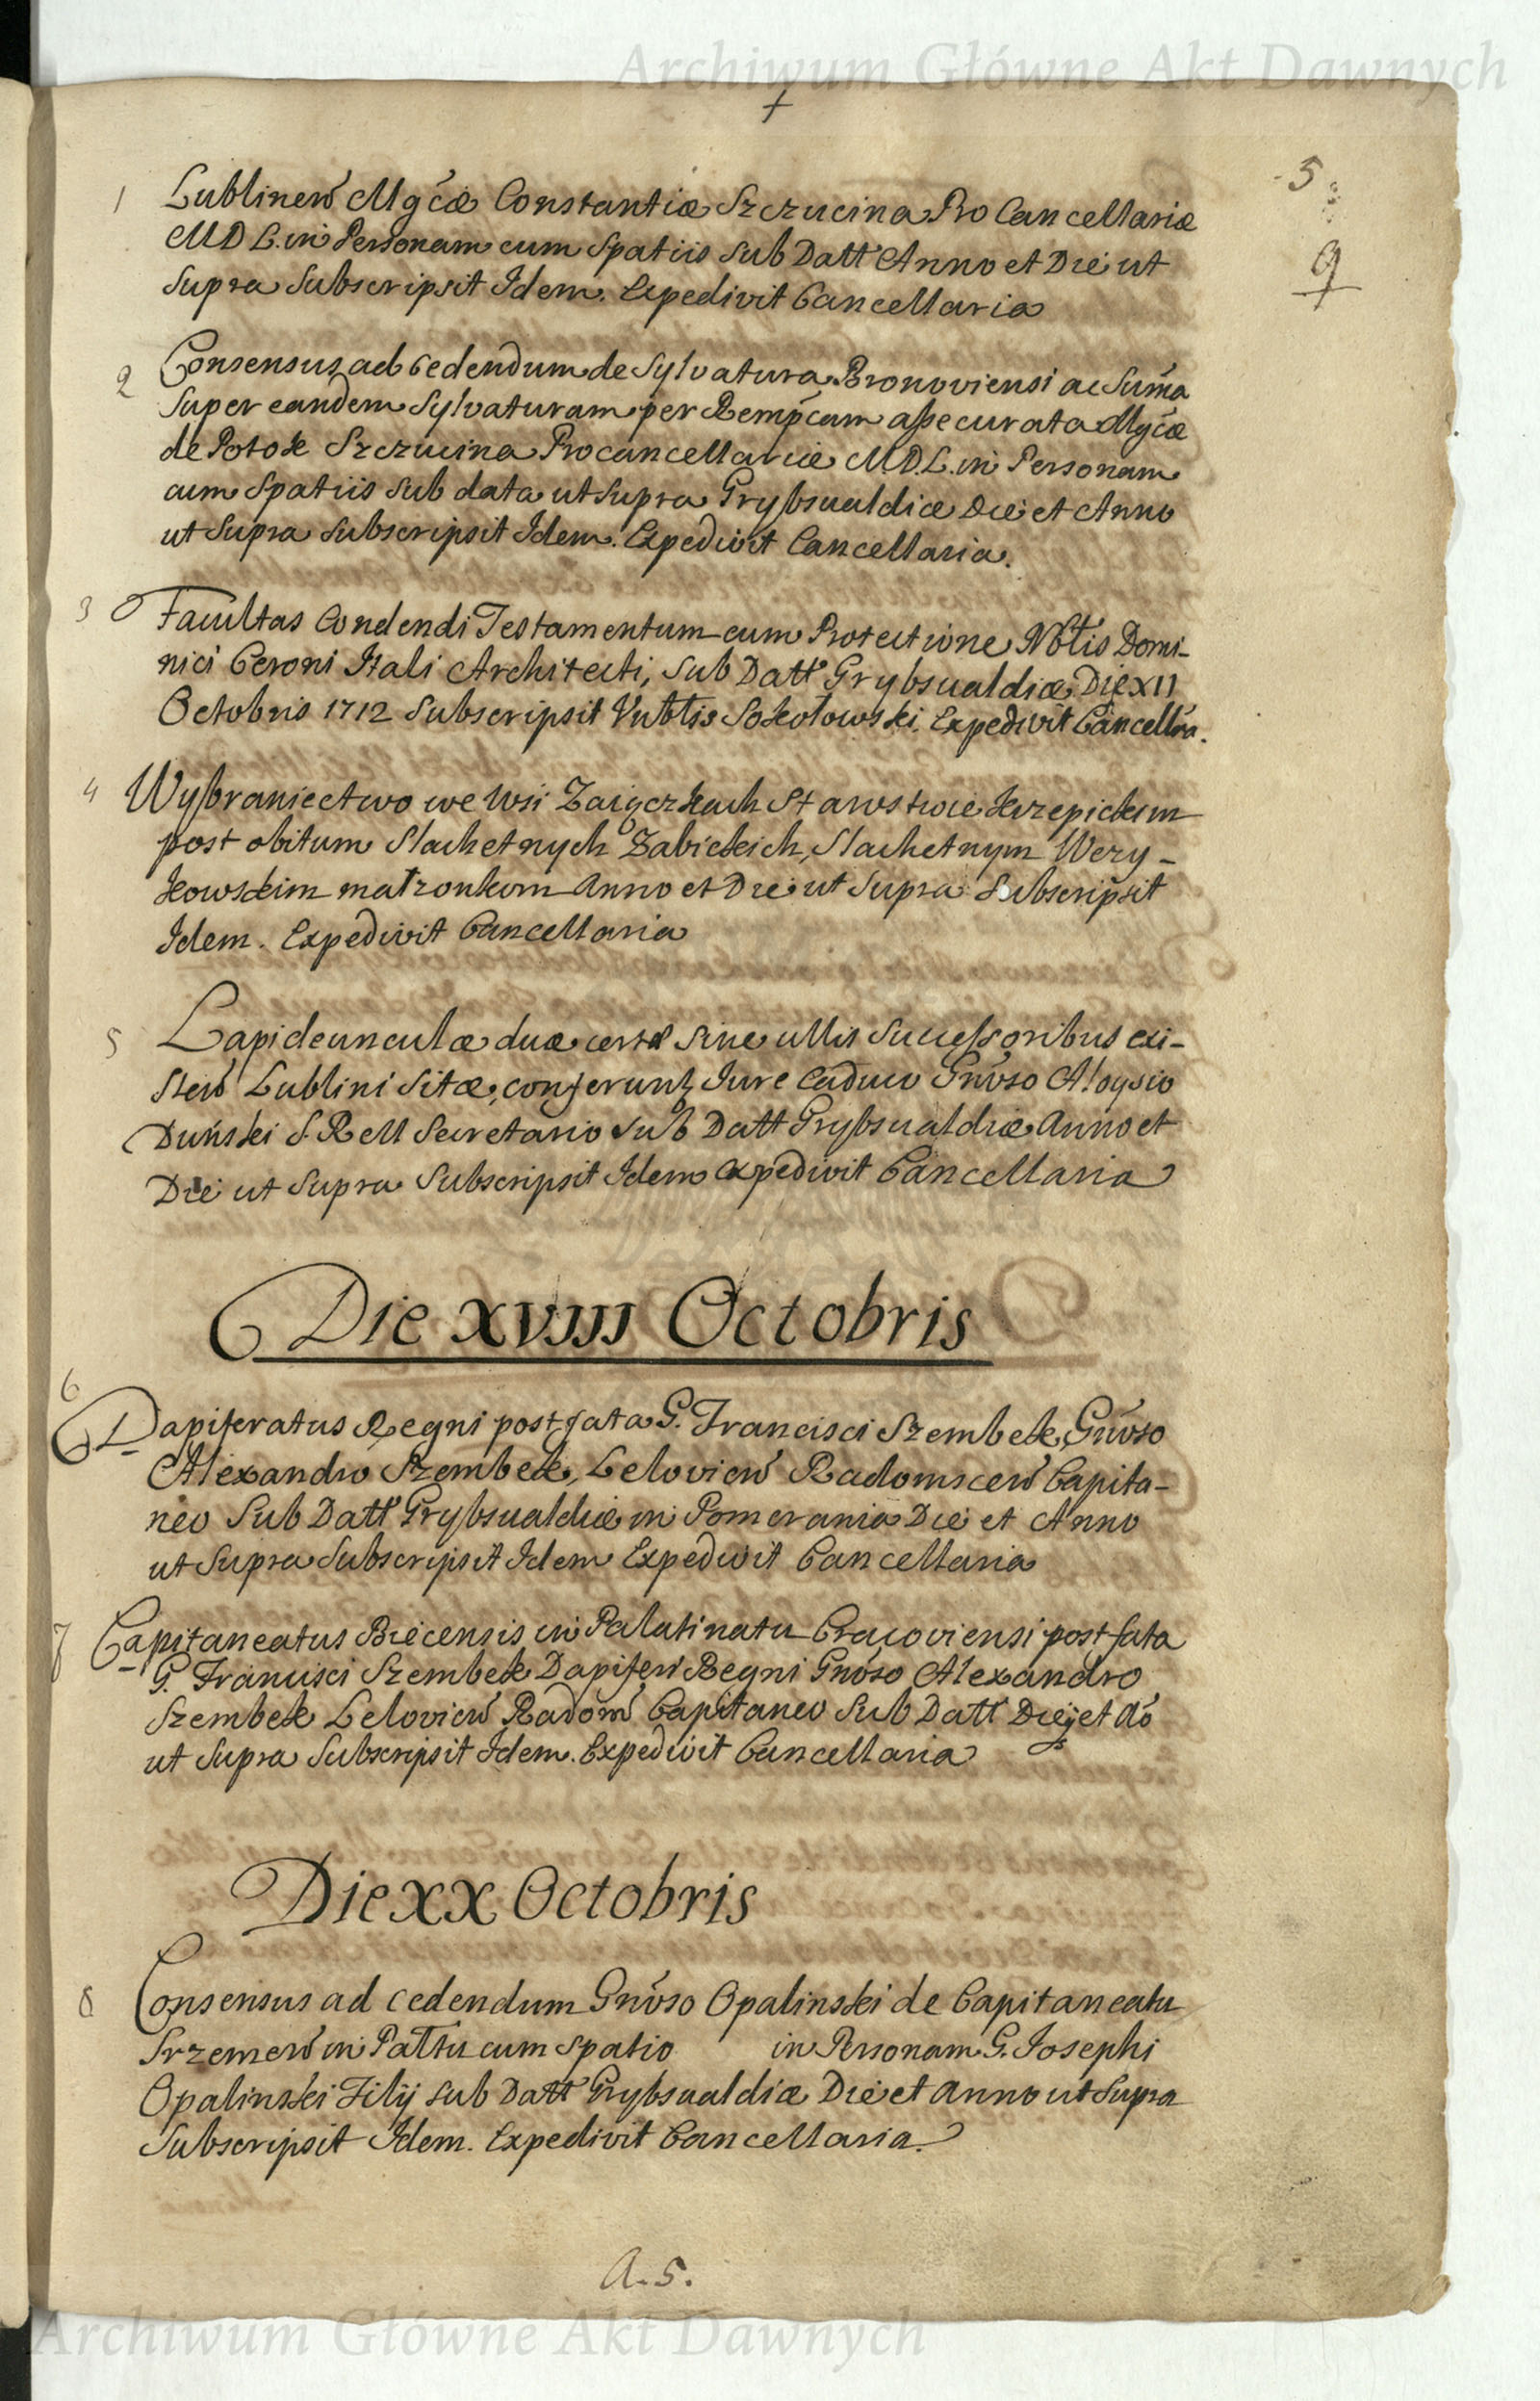 Archiwum Główne Akt Dawnych
+
5
9
1 Lublineñ Mgcæ Constantiæ Szczucina ProCancellariæ
MDL. in Personam cum Spatiis Sub Datt Anno et Die ut
Supra Subscripsit Idem. Expedivit Cancellaria
2 Consensus ad Cedendum de Sylvatura Bronoviensi ac Suma
Super eandem Sylvaturam per Rempcam assecurata Mgcæ
de Potok Szczucina Procancellariæ M.D.L. in Personam
cum Spatiis Sub data ut Supra Grybsualdiæ Die et Anno
ut Supra Subscripsit Idem. Expedivit Cancellaria.
3 Facultas Condendi Testamentum cum Protectione Nbtis Domi-
nici Ceroni Itali Architecti, Sub Datt Grybsualdiæ Die XII
Octobris 1712 Subscripsit Vubtis Sokołowski. Expedivit Cancellra.
4 Wybraniectwo we Wsi Zaiączkach Starostwie krzepickim
post obitum Slachetnych Zabickich, Slachetnym Wery-
kowskim małzonkom Anno et Die ut Supra Subscripsit
Idem. Expedivit Cancellaria
5 Lapideunculæ duæ certæ Sine ullis Successoribus exi-
steñ Lublini Sitæ, conferunt Jure Caduco Gnoso Aloysio
Duński S. R. M Secretario Sub Datt Grybsualdiæ Anno et
Die ut Supra Subscripsit Idem Expedivit Cancellaria
Die XVIII Octobris
6 Dapiferatus Regni post fata G. Francisci Szembek, Gnoso
Alexandro Szembek, Lelovieñ Radomsceñ Capita-
neo Sub Datt Grybsualdiæ in Pomerania Die et Anno
ut Supra Subscripsit Idem Expedivit Cancellaria
7 Capitaneatus Biecensis in Palatinatu Cracoviensi post fata
G. Francisci Szembek Dapiferi Regni Gnoso Alexandro
Szembek Lelovieñ Radom Capitaneo Sub Datt Die et Ao
ut Supra Subscripsit Idem. Expedivit Cancellaria
Die XX Octobris
8 Consensus ad cedendum Gnoso Opalinski de Capitaneatu
Srzemeñ in Pałttu cum Spatio in Personam G. Josephi
Opalinski Filij Sub Datt Grybsualdiæ Die et Anno ut Supra
Subscripsit Idem. Expedivit Cancellaria.
A. 5.
Archiwum Główne Akt Dawnych